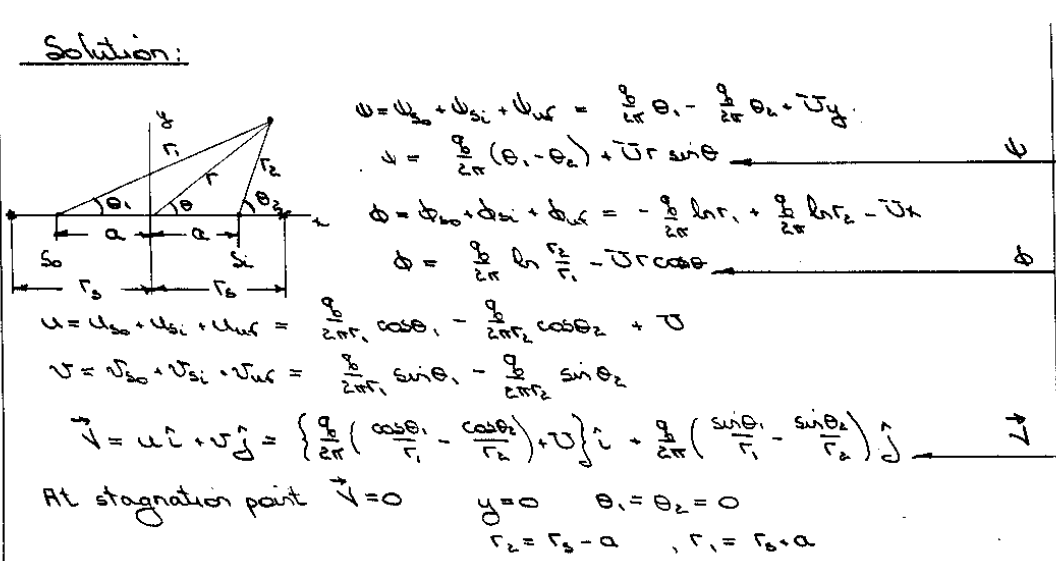 Solution:
ψ = ψ_so + ψ_si + ψ_uf = q/2π θ₁ - q/2π θ₂ + Uy.
ψ = q/2π (θ₁ - θ₂) + Ur sinθ ψ
y
r₁ r r₂
θ₁ θ θ₂ x
a a
So Si
r_s r_s
φ = φ_so + φ_si + φ_uf = - q/2π ln r₁ + q/2π ln r₂ - Ux
φ = q/2π ln r₂/r₁ - Ur cosθ φ
u = u_so + u_si + u_uf = q/2πr₁ cosθ₁ - q/2πr₂ cosθ₂ + U
v = v_so + v_si + v_uf = q/2πr₁ sinθ₁ - q/2πr₂ sinθ₂
V⃗ = uî + vĵ = {q/2π (cosθ₁/r₁ - cosθ₂/r₂) + U} î + q/2π (sinθ₁/r₁ - sinθ₂/r₂) ĵ V⃗
At stagnation point V⃗ = 0 y = 0 θ₁ = θ₂ = 0
r₂ = r_s - a , r₁ = r_s + a